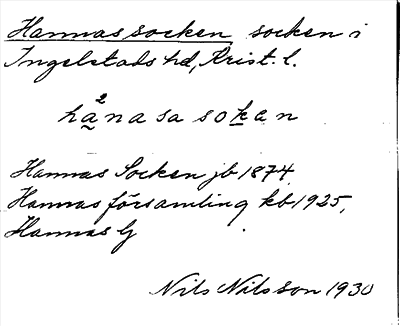 Hannas socken socken i
Ingelstads hd, Krist. l.
hą²nasa sokan
Hannas Socken jb 1874
Hannas församling kb 1925,
Hannas G
Nils Nilsson 1930